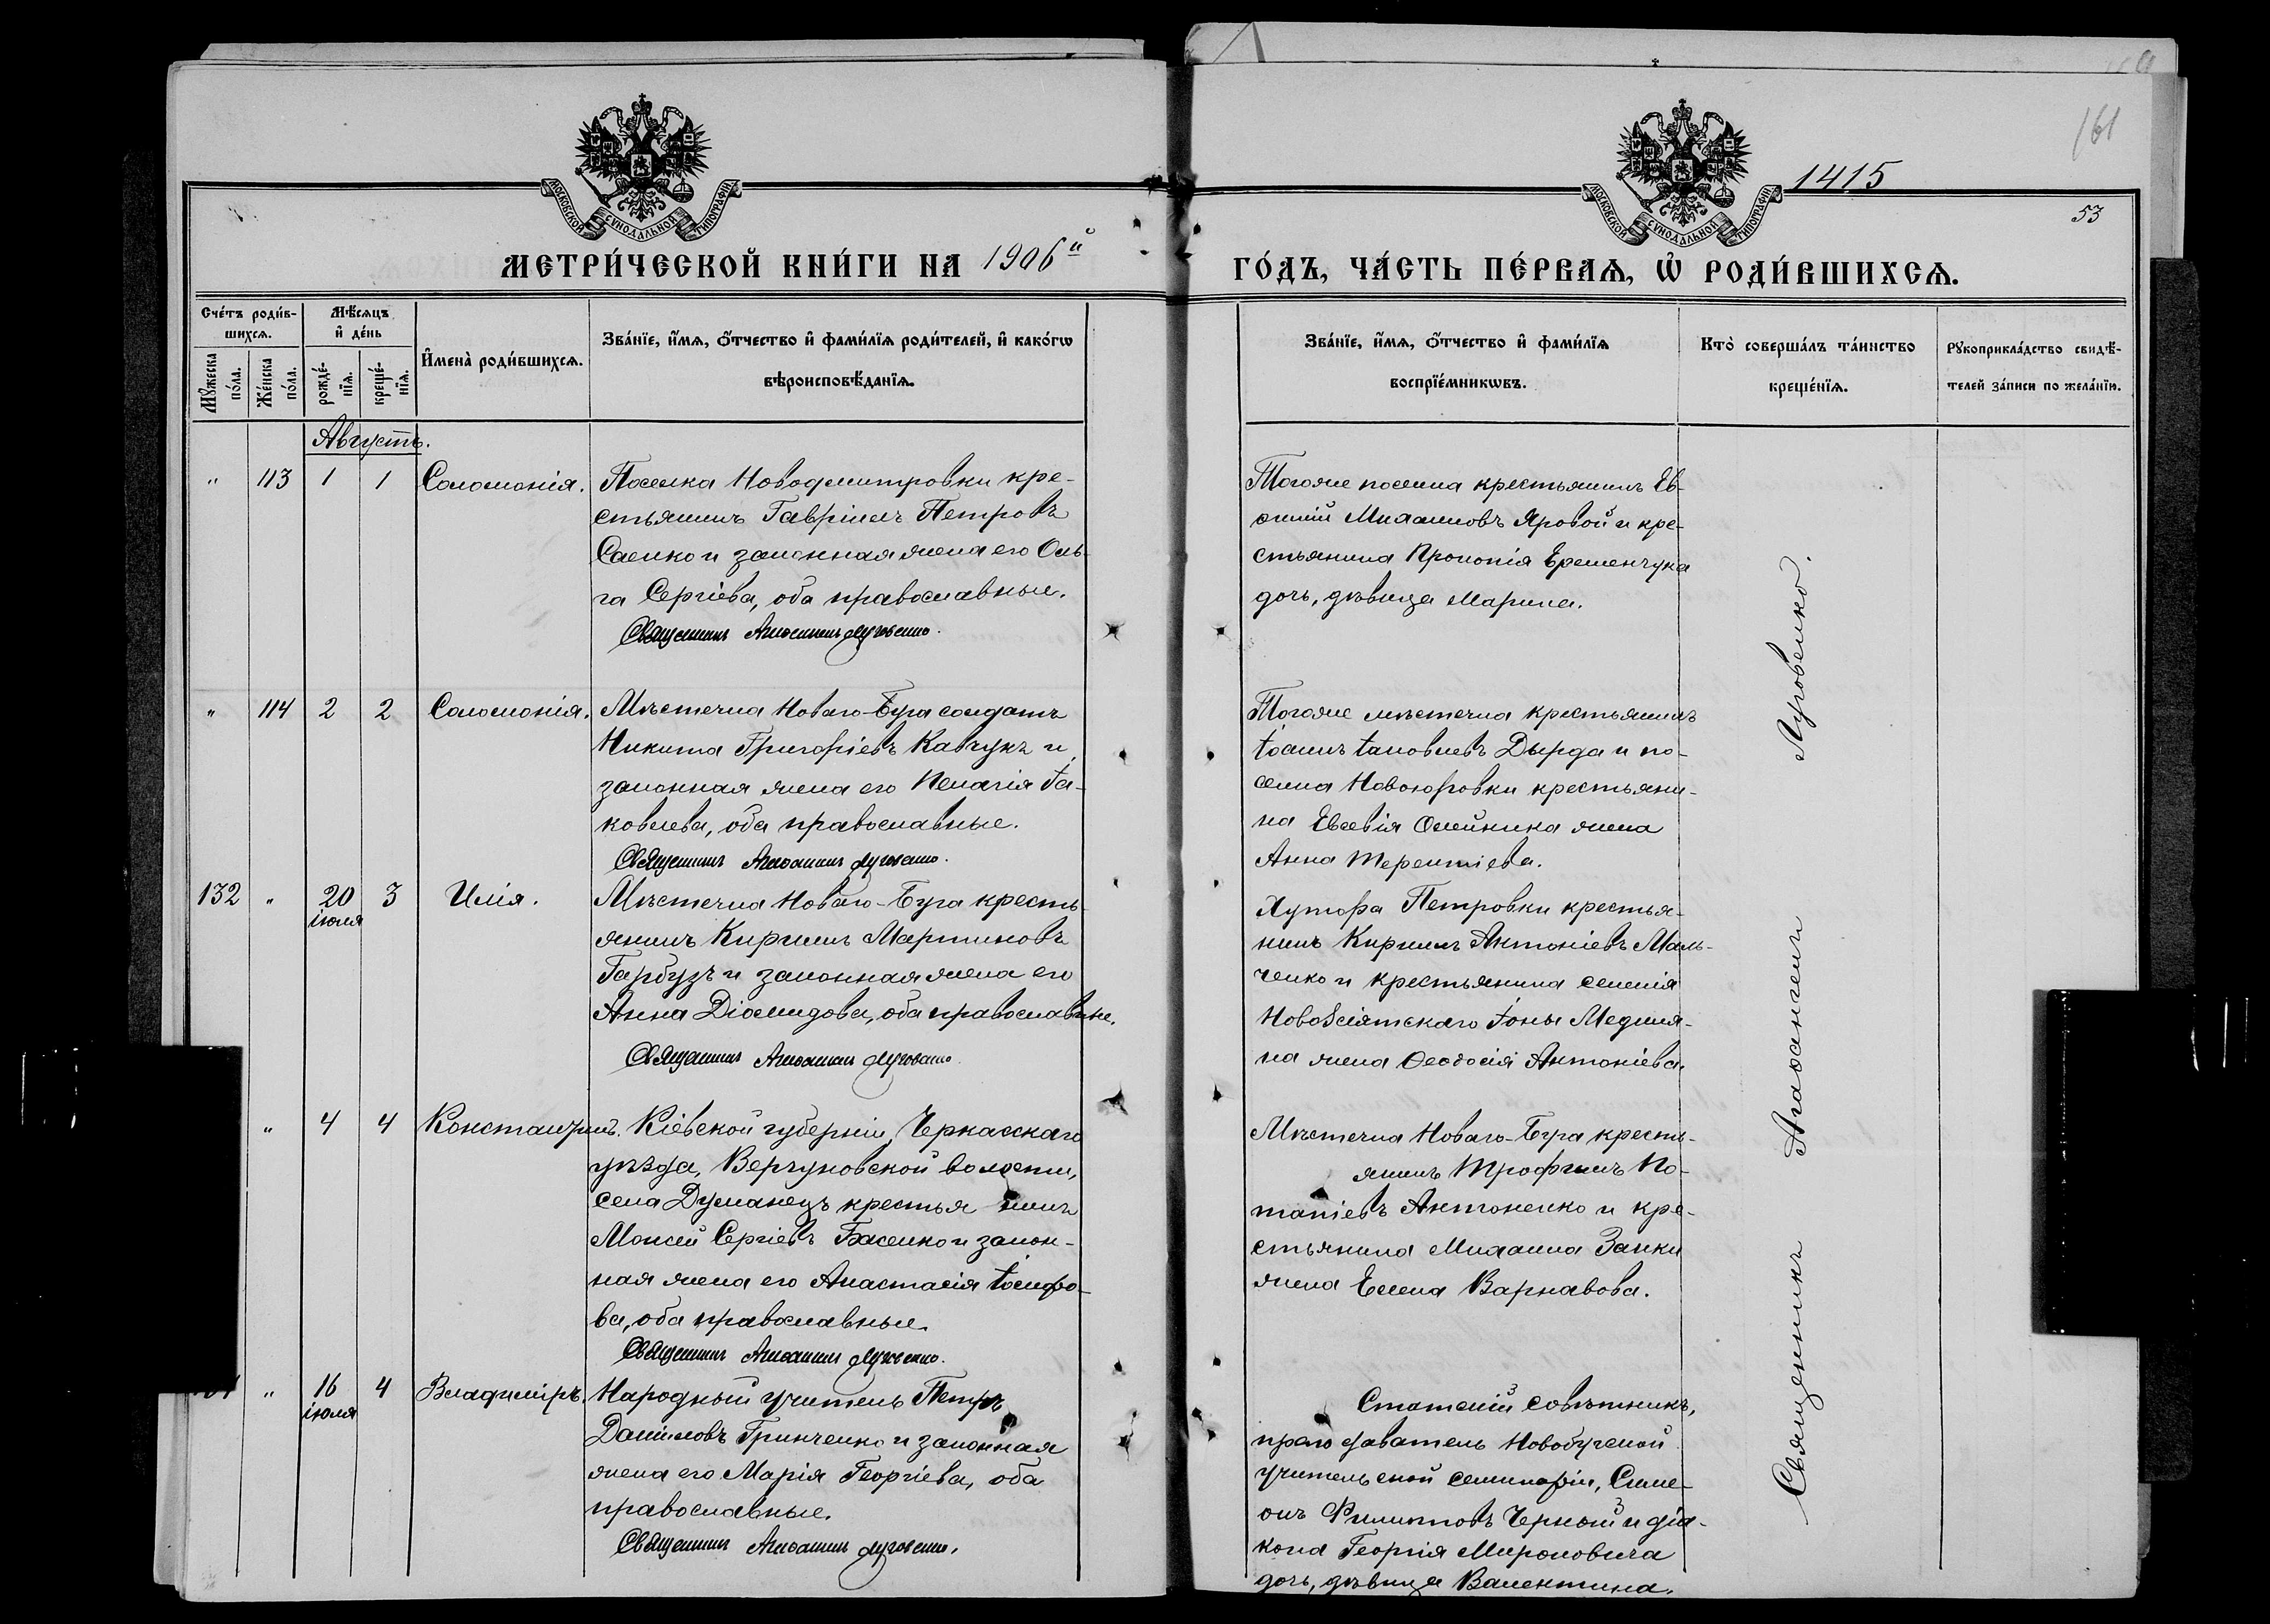 161
1415
53
МОСКОВСКОЙ СѴНОДАЛЬНОЙ ТИПОГРАФІИ
МОСКОВСКОЙ СѴНОДАЛЬНОЙ ТИПОГРАФІИ
МЕТРИ́ЧЕСКОЙ КНИ́ГИ НА 1906й
ГО́ДЪ, ЧА́СТЬ ПЕ́РВАѦ, Ѡ РОДИ́ВШИХСѦ.
Сче́тъ роди́в-
шихсѧ.
Мꙋ́жеска
по́ла.
Же́нска
по́ла.
Мѣ́сѧцъ
и҆ де́нь
рожде́-
нїѧ.
креще́-
нїѧ.
И҆мена̀ роди́вшихсѧ.
Зва́нїе, и҆́мѧ, ѻ҆́тчество и҆ фами́лїѧ роди́телей, и҆ како́гѡ
вѣроисповѣ́данїѧ.
Зва́нїе, и҆́мѧ, ѻ҆́тчество и҆ фами́лїѧ
воспрїе́мникѡвъ.
Кто̀ соверша́лъ та́инство
креще́нїѧ.
Рꙋкоприкла́дство свидѣ́-
телей за́писи по жела́нїю.
Августъ.
" 113 1 1 Соломонія.
Поселка Новодмитровки кре-
стьянинъ Гавріилъ Петровъ
Саенко и законная жена его Оль-
га Сергіева, оба православные.
Священникъ Агаѳангелъ Луговенко.
Тогоже поселка крестьянинъ Ев-
ѳимій Михаиловъ Яровой и кре-
стьянина Прокопія Еременчука
дочь, дѣвица Марина.
" 114 2 2 Соломонія.
Мѣстечка Новаго-Буга солдатъ
Никита Григоріевъ Кавчукъ и
законная жена его Пелагія Іа-
ковлева, оба православные.
Священникъ Агаѳангелъ Луговенко.
Тогоже мѣстечка крестьянинъ
Іоаннъ Іаковлевъ Дырда и по-
селка Новоюрьевки крестьяни-
на Евсевія Олейника жена
Анна Терентіева.
132 " 20 іюля 3 Илія.
Мѣстечка Новаго-Буга кресть-
янинъ Кириллъ Мартиновъ
Гарбузъ и законная жена его
Анна Діомидова, оба православные.
Священникъ Агаѳангелъ Луговенко.
Хутора Петровки крестья-
нинъ Кириллъ Антоніевъ Маль-
ченко и крестьянина селенія
Іоны
на жена Ѳеодосія Антоніева.
" 4 4 Константинъ.
Кіевской губерніи, Черкасскаго
уѣзда, Вергуновской волости,
села Думанецъ крестья нинъ
Моисей Сергіевъ Басенко и закон-
ная жена его Анастасія Іосифо-
ва, оба православные.
Священникъ Агаѳангелъ Луговенко.
Мѣстечка Новаго-Буга кресть-
янинъ Трофимъ По-
тапіевъ Антоненко и кре-
стьянина Михаила Заики
жена Елена Варнавова.
" 16 іюля 4 Владиміръ.
Народный учитель Петръ
Даніиловъ Гринченко и законная
жена его Марія Георгіева, оба
православные.
Священникъ Агаѳангелъ Луговенко.
Статскій совѣтникъ,
преподаватель Новобугской
учительской семинаріи, Симе-
онъ Филипповъ Черный и діа-
кона Георгія Мироновича
дочь, дѣвица Валентина.
Священникъ Агаѳангелъ Луговенко.